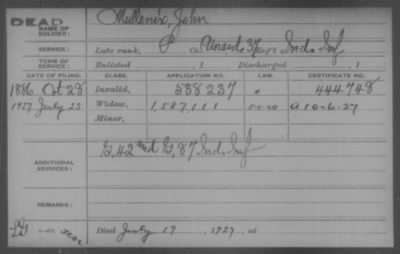 DEAD
NAME OF SOLDIER: Mullenix, John
SERVICE: Late rank, P Co. Unasd, 37 Reg't Ind. Inf
TERM OF SERVICE: Enlisted , 1 Discharged , 1
DATE OF FILING. CLASS. APPLICATION NO. LAW. CERTIFICATE NO.
1886 Oct 28 Invalid, 588237 " 444748
1927 July 25 Widow, 1,587,111 A 10-6-27
Minor,
ADDITIONAL SERVICES: G, 42nd G, 87 Ind. Inf
REMARKS:
Died July 19, 1927, at